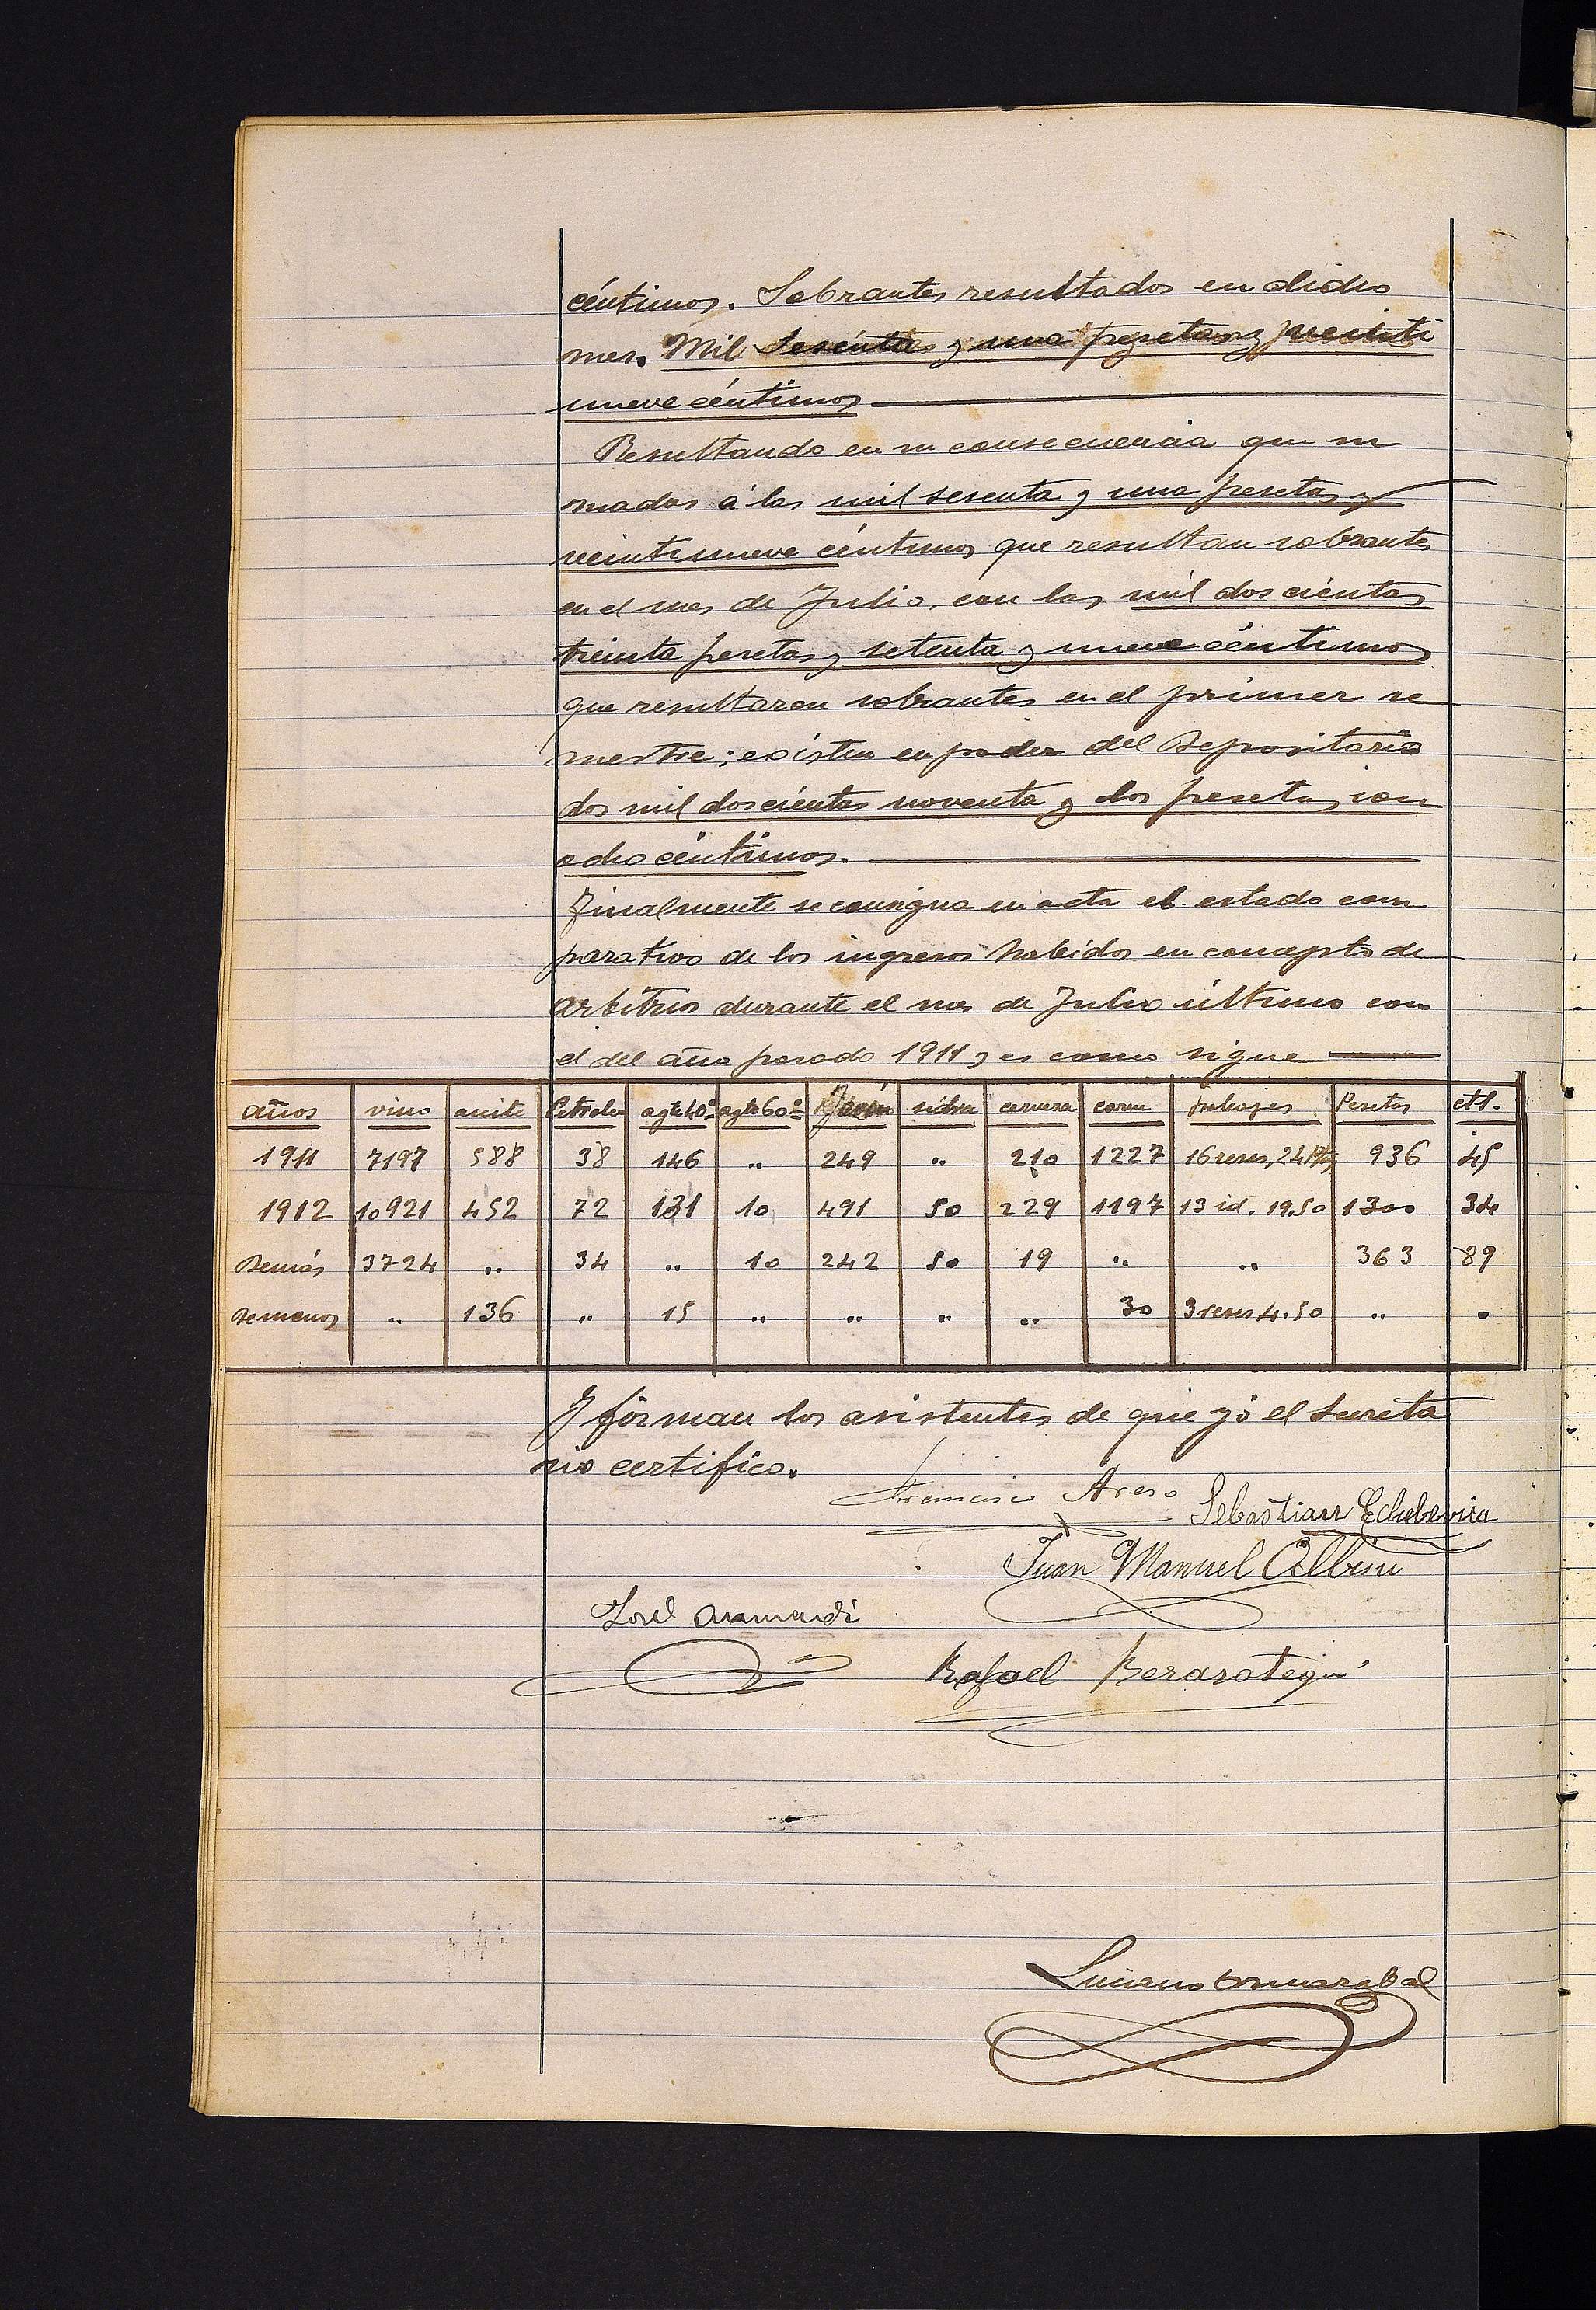 céntimos. Sobrantes resultados en dicho
mes. Mil sesenta y una pesetas y veinti
nueve céntimos
Resultando en su consecuencia que su
mados á las mil sesenta y una pesetas y
veintinueve céntimos que resultan sobrantes
en el mes de Julio, con las mil doscientas
treinta pesetas y setenta y nueve céntimos
que resultaron sobrantes en el primer se
mestre; existen en poder del Depositario
dos mil doscientas noventa y dos pesetas con
ocho céntimos.
Finalmente se consigna en acta el estado com
parativo de los ingresos habidos en concepto de
arbitrios durante el mes de Julio último con
el del año pasado 1911 y es como sigue
años vino aceite Petroleo agte 40º agte 60º sidra cerveza carne Pesetas cts.
1911 7197 588 38 146 .. 249 .. 210 1227 16 reses, 24 Ptas 936 45
1912 10921 452 72 131 10 491 50 229 1197 13 id. 19.50 1300 34
Demás 3724 .. 34 .. 10 242 50 19 .. .. 363 89
Demenos .. 136 .. 15 .. .. .. .. 30 3 reses 4.50 .. .
Y firman los asistentes de que yó el Secreta
rio certifico.
Francisco Areso Sebastian Echeberria
Juan Manuel Albisu
José Armendi
Rafael Berasategui
Luciano